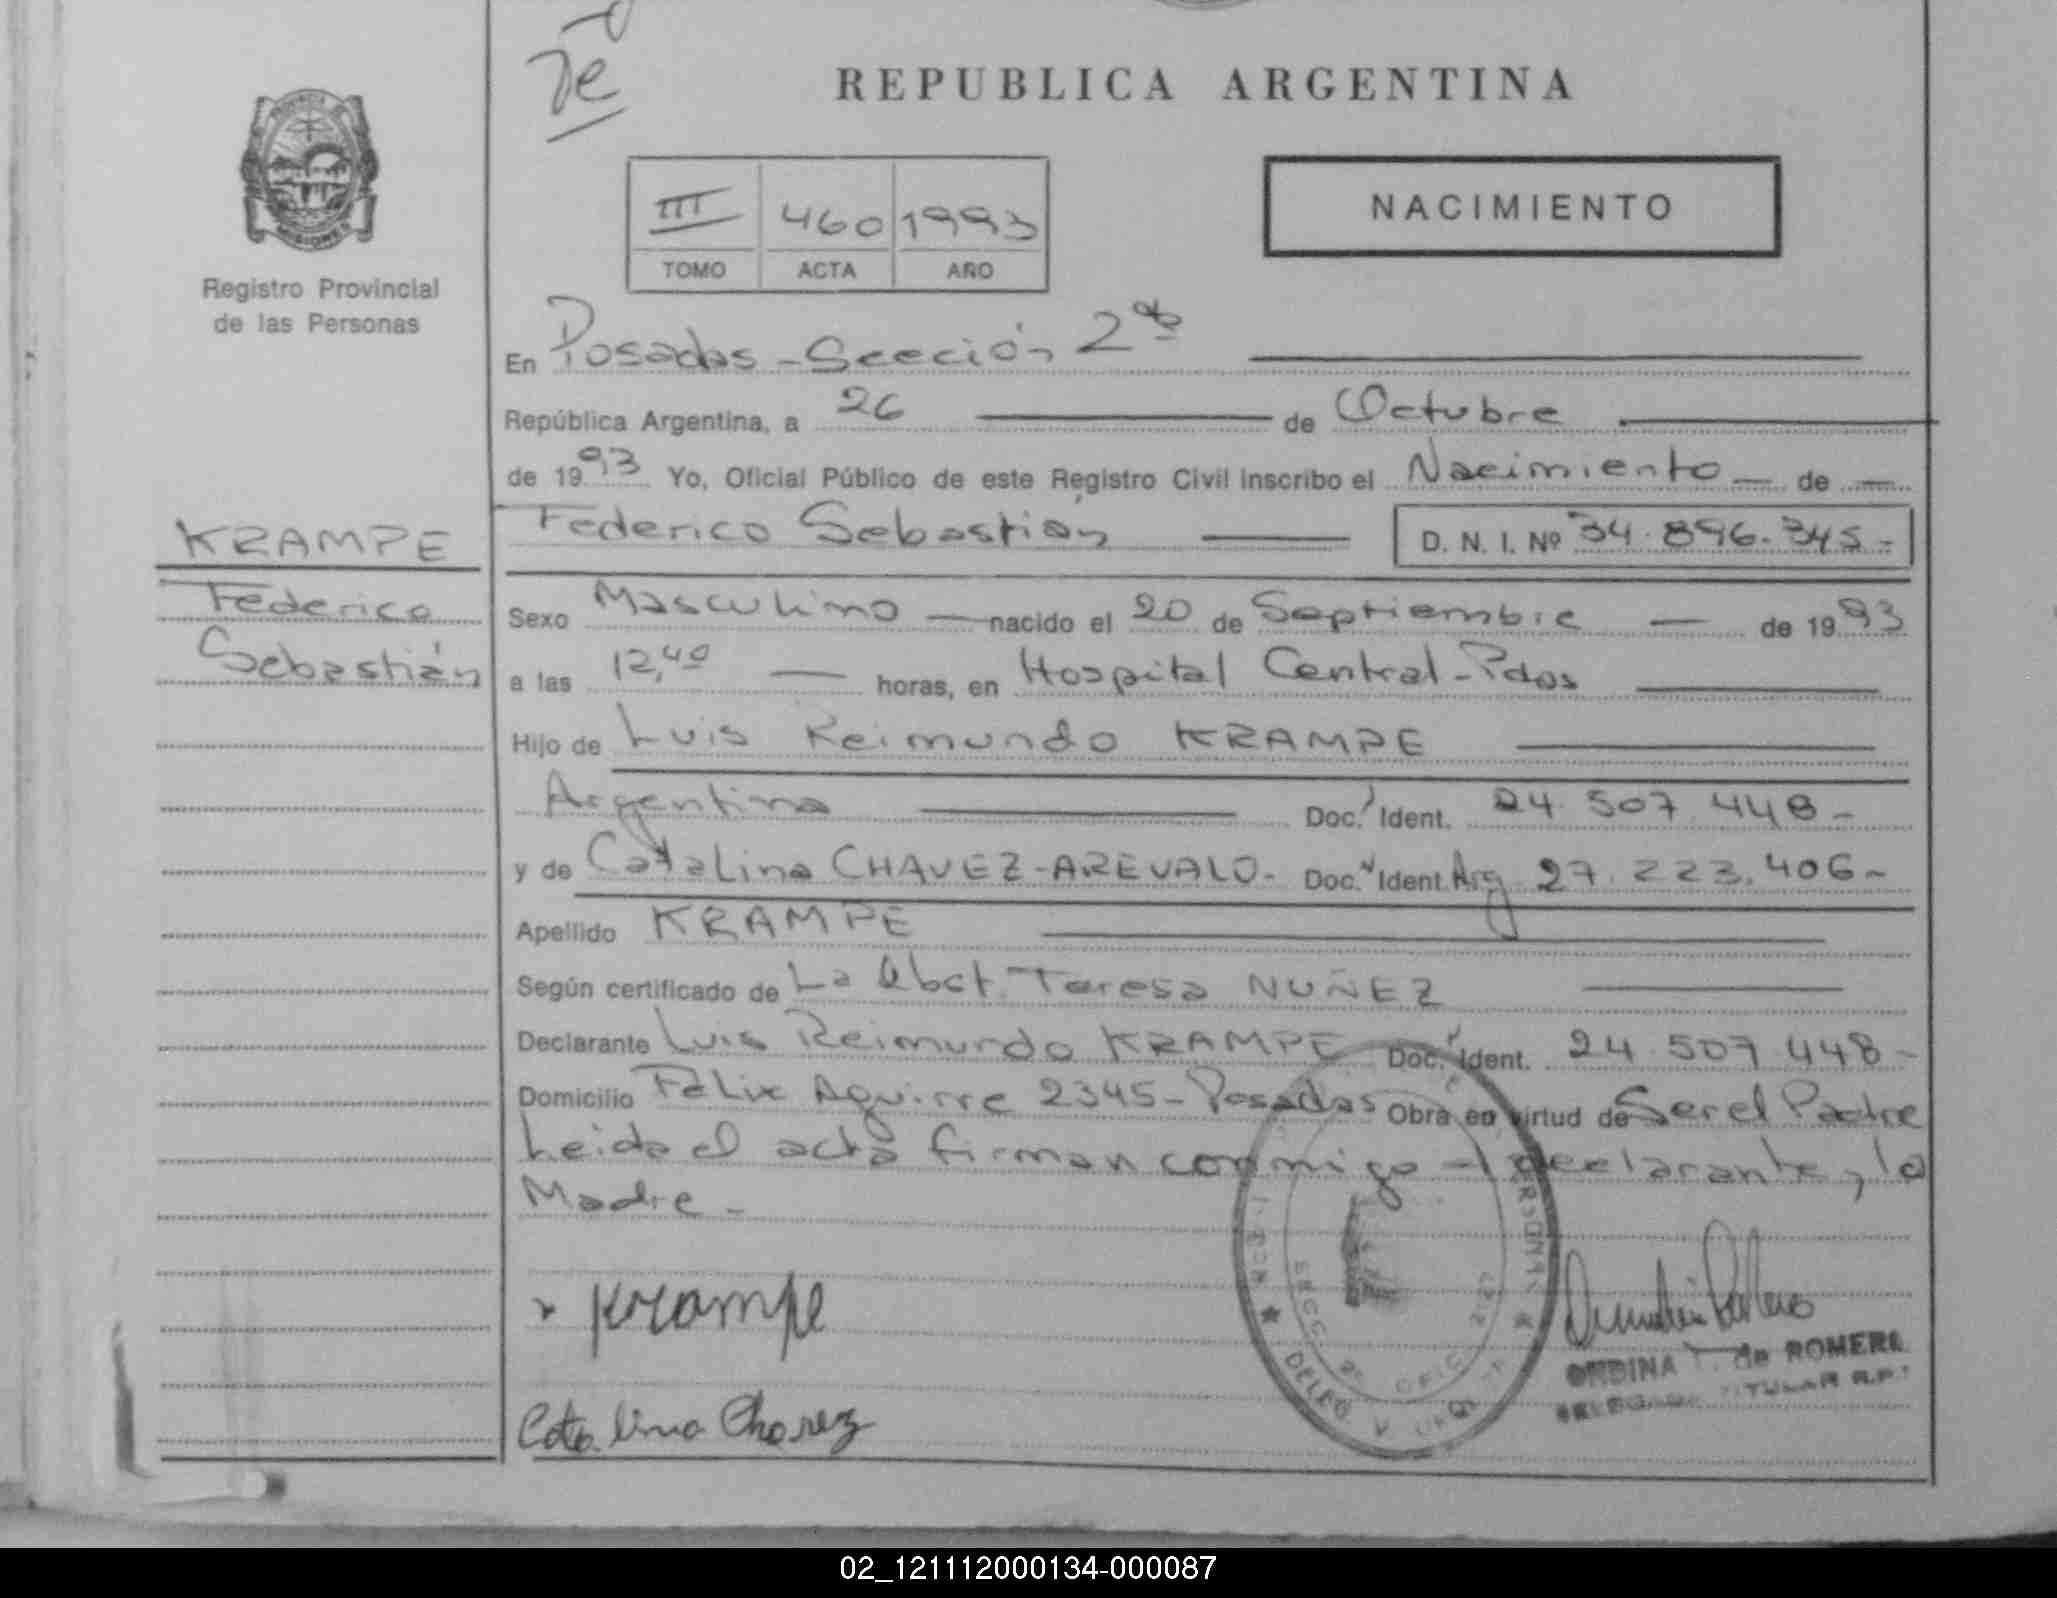 REPUBLICA ARGENTINA
NACIMIENTO
III 460 1993
TOMO ACTA AÑO
MISIONES
Registro Provincial
de las Personas
KRAMPE
Federico
Sebastián
En Posadas - Sección 2da
República Argentina, a 26 de Octubre
de 1993 Yo, Oficial Público de este Registro Civil inscribo el Nacimiento de
Federico Sebastián D. N. I. Nº 34.896.345.-
Sexo Masculino nacido el 20 de Septiembre de 1993
a las 12,40 horas, en Hospital Central - Pdas
Hijo de Luis Reimundo KRAMPE
Argentina Doc. Ident. 24.507.448-
y de Catalina CHAVEZ-AREVALO- Doc. Ident. Arg 27.223.406-
Apellido KRAMPE
Según certificado de La Obst. Teresa NUÑEZ
Declarante Luis Reimundo KRAMPE Doc. Ident. 24.507.448-
Domicilio Félix Aguirre 2345 - Posadas Obra en virtud de Ser el Padre
Leida el acta firman conmigo el declarante, la
Madre -
Krampe
Catalina Chavez
ORDINA de ROMERO
TITULAR R.P.
02_121112000134-000087